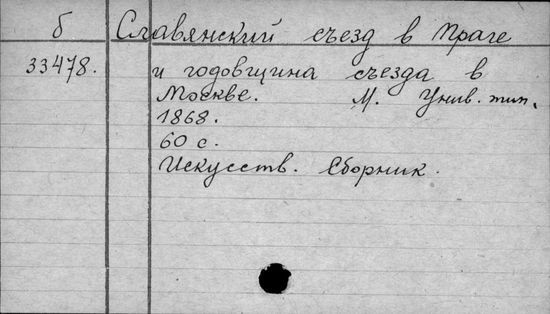 б Славянский съезд в Праге
33478. и годовщина съезда в
Москве. М. Унив. тип.
1868.
60 с.
Искусств. Сборник.